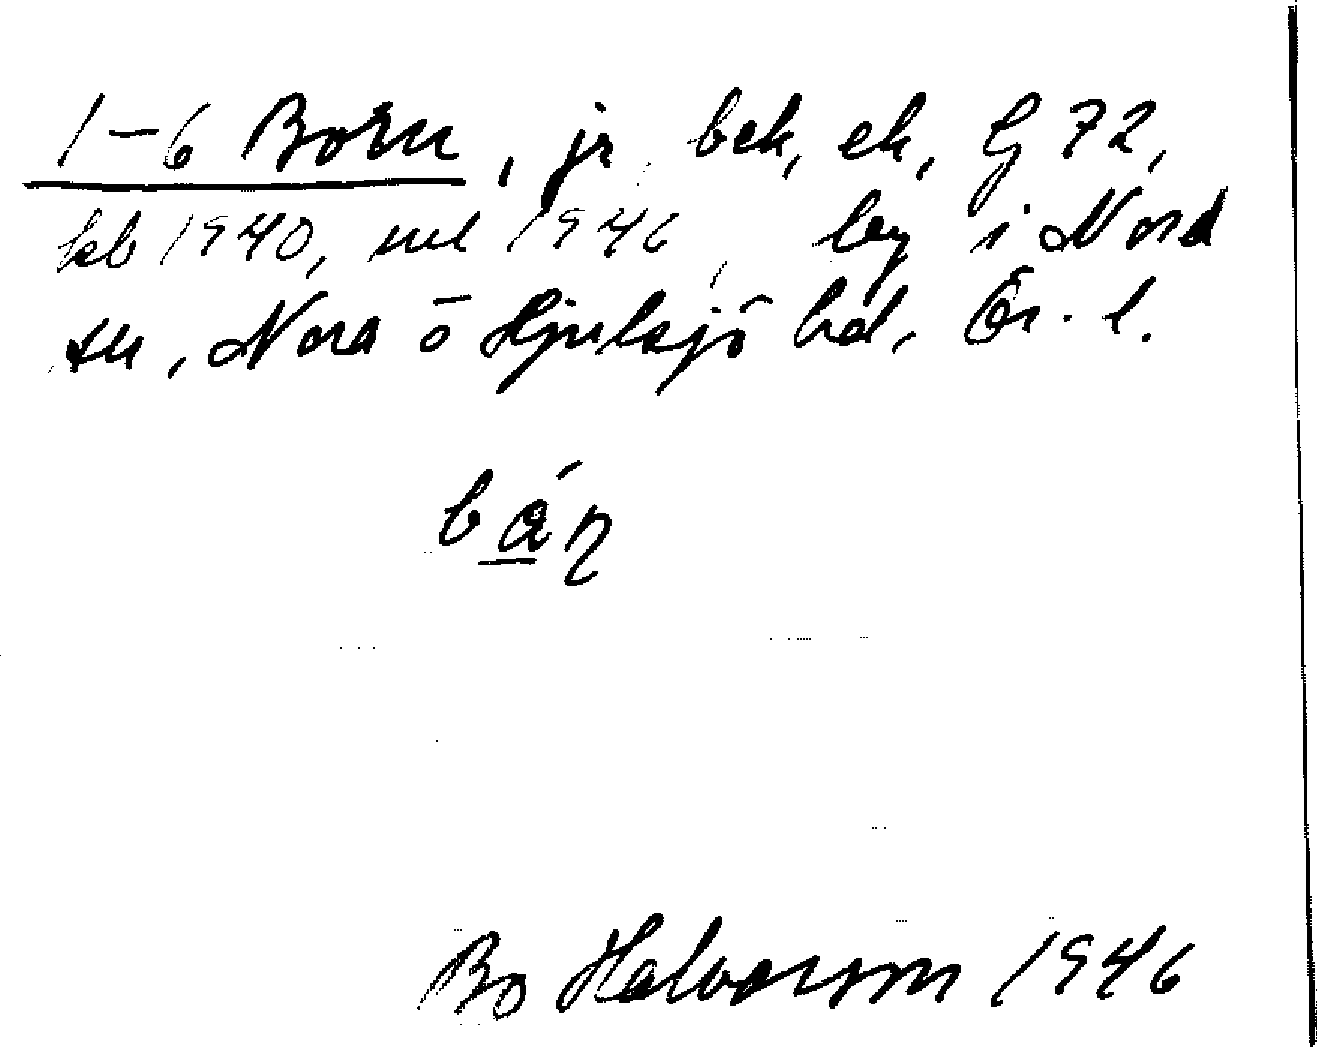 1-6 Born, jr. bek, ek, Gj 72,
kb 1940, uel 1946, by i Nora
sn, Nora o Hjulsjö hd, Ör. l.
bá̱ɳ
Bo Halvarson 1946